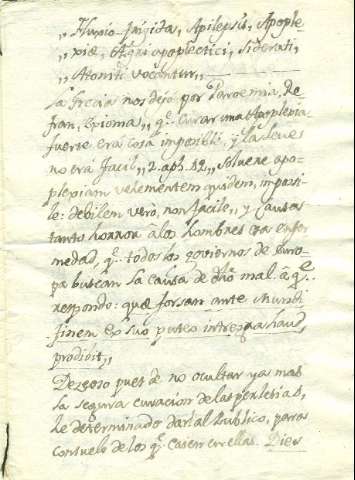 ,, Apilepsis, Apople
xiæ, Atqui apoplectici, siderati,
,, Atoniti vocantur,,
La Grecia nos dejó por Paroemia, Re
fran, q.e curar una Apoplexia
fuerte era cosa imposible, y la leve
no era facil,, 2. aph. 42,, Solvere apo-
plexiam vehementem quidem, imposi
le: debilem verò, non facile,, y causa
tanto horror à los hombres esta enfer
medad, q.e todos los goviernos de Euro-
pa buscan la causa de dho mal. à q.e
respondo: quæ forsan ante Mundi
finem ex suo puteo integra haud
prodibit,,
Deseoso pues de no ocultar yá mas
la segura curacion de las perlesias,
he determinado darla al Publico, para
consuelo de los q.e caen en ellas. Dies